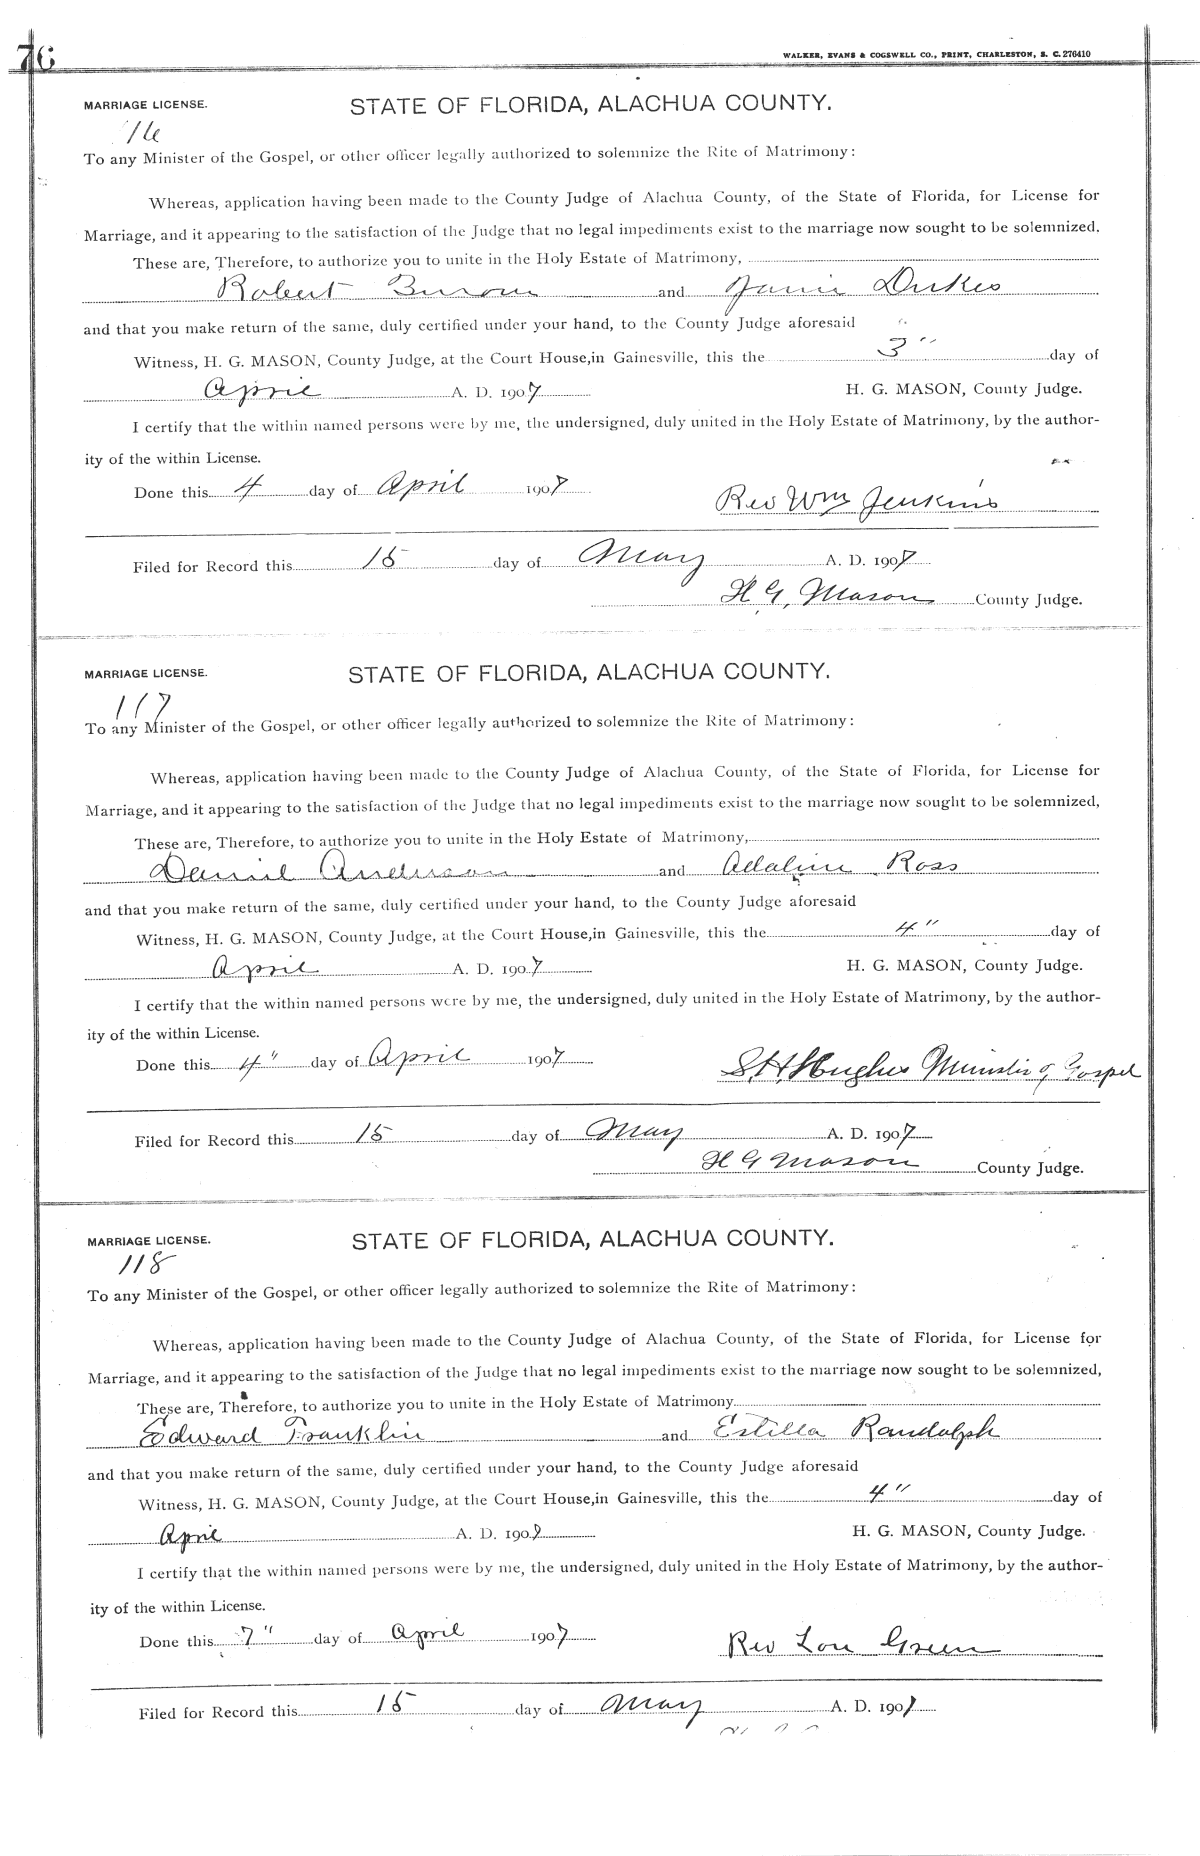 76
WALKER, EVANS & COGSWELL CO., PRINT, CHARLESTON, S. C. 276410
MARRIAGE LICENSE.
STATE OF FLORIDA, ALACHUA COUNTY.
116
To any Minister of the Gospel, or other officer legally authorized to solemnize the Rite of Matrimony:
Whereas, application having been made to the County Judge of Alachua County, of the State of Florida, for License for
Marriage, and it appearing to the satisfaction of the Judge that no legal impediments exist to the marriage now sought to be solemnized.
These are, Therefore, to authorize you to unite in the Holy Estate of Matrimony,
Robert and Janie Dukes
and that you make return of the same, duly certified under your hand, to the County Judge aforesaid
Witness, H. G. MASON, County Judge, at the Court House,in Gainesville, this the 3" day of
April A. D. 1907 H. G. MASON, County Judge.
I certify that the within named persons were by me, the undersigned, duly united in the Holy Estate of Matrimony, by the author-
ity of the within License.
Done this 4 day of April 1907
Rev Wm Jenkins
Filed for Record this 15 day of May A. D. 1907
H G, Mason County Judge.
MARRIAGE LICENSE.
STATE OF FLORIDA, ALACHUA COUNTY.
117
To any Minister of the Gospel, or other officer legally authorized to solemnize the Rite of Matrimony:
Whereas, application having been made to the County Judge of Alachua County, of the State of Florida, for License for
Marriage, and it appearing to the satisfaction of the Judge that no legal impediments exist to the marriage now sought to be solemnized,
These are, Therefore, to authorize you to unite in the Holy Estate of Matrimony,
Daniel Anderson and Adaline Ross
and that you make return of the same, duly certified under your hand, to the County Judge aforesaid
Witness, H. G. MASON, County Judge, at the Court House,in Gainesville, this the 4" day of
April A. D. 1907 H. G. MASON, County Judge.
I certify that the within named persons were by me, the undersigned, duly united in the Holy Estate of Matrimony, by the author-
ity of the within License.
Done this 4" day of April 1907
S. H. Hughes Minister of Gospel
Filed for Record this 15 day of May A. D. 1907
H G Mason County Judge.
MARRIAGE LICENSE.
STATE OF FLORIDA, ALACHUA COUNTY.
118
To any Minister of the Gospel, or other officer legally authorized to solemnize the Rite of Matrimony:
Whereas, application having been made to the County Judge of Alachua County, of the State of Florida, for License for
Marriage, and it appearing to the satisfaction of the Judge that no legal impediments exist to the marriage now sought to be solemnized,
These are, Therefore, to authorize you to unite in the Holy Estate of Matrimony
Edward Franklin and Estilla Randolph
and that you make return of the same, duly certified under your hand, to the County Judge aforesaid
Witness, H. G. MASON, County Judge, at the Court House,in Gainesville, this the 4" day of
April A. D. 1907 H. G. MASON, County Judge.
I certify that the within named persons were by me, the undersigned, duly united in the Holy Estate of Matrimony, by the author-
ity of the within License.
Done this 7" day of April 1907
Rev Lon Green
Filed for Record this 15 day of May A. D. 1907